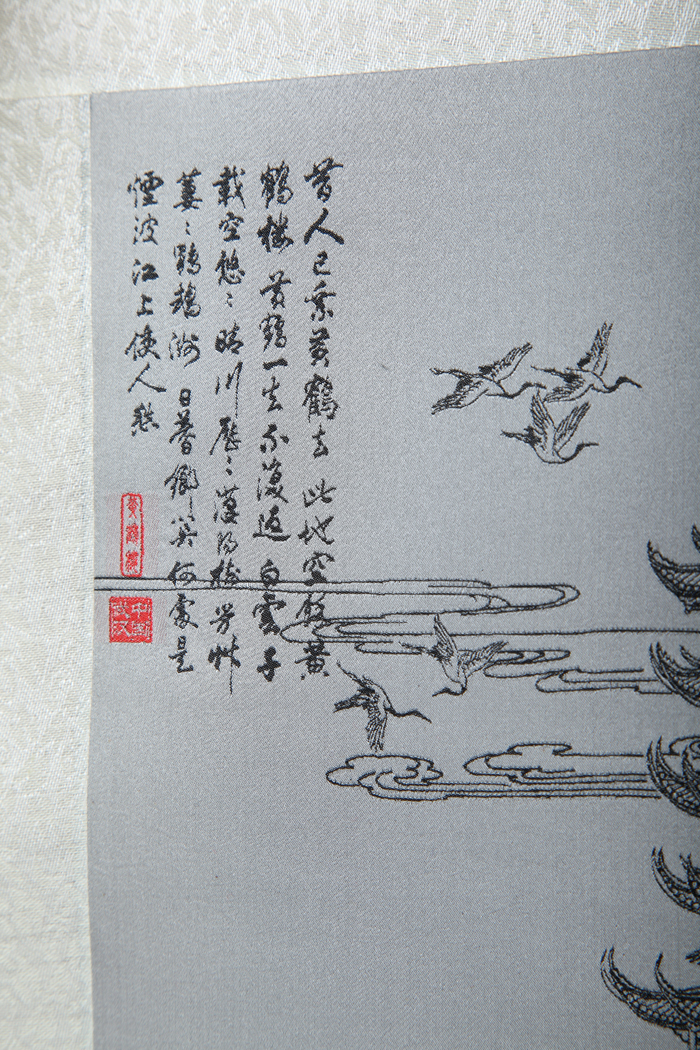 昔人已乘黄鶴去 此地空餘黄
鶴楼 黄鶴一去不復返 白雲千
載空悠〻 晴川歷〻漢陽樹 芳艸
萋〻鸚鵡洲 日暮鄉関何處是
煙波江上使人愁
黄鶴樓
中国
武汉